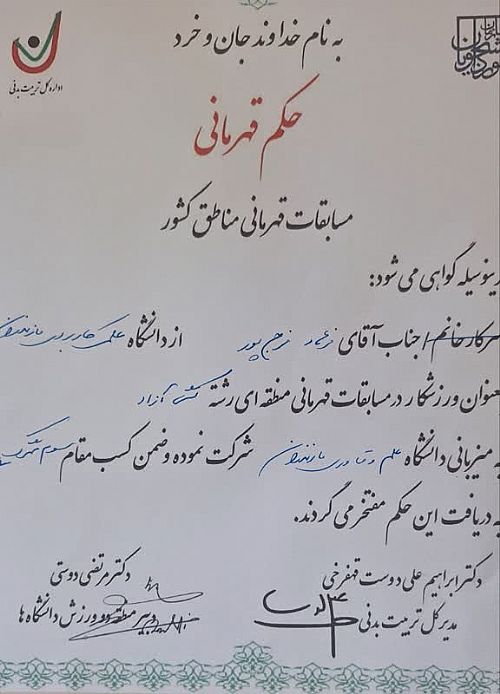 به نام خداوند جان و خرد
اداره کل تربیت بدنی
حکم قهرمانی
مسابقات قهرمانی مناطق کشور
بدینوسیله گواهی می شود:
سرکار خانم / جناب آقای فرجی پور از دانشگاه علمی کاربردی مازندران
بعنوان ورزشکار در مسابقات قهرمانی منطقه ای رشته کشتی آزاد
به میزبانی دانشگاه علم و فناوری مازندران شرکت نموده و ضمن کسب مقام سوم
به دریافت این حکم مفتخر می گردند.
دکتر ابراهیم علی دوست قهفرخی
مدیر کل تربیت بدنی
دکتر مرتضی دوستی
دبیر منطقه ورزش دانشگاه ها